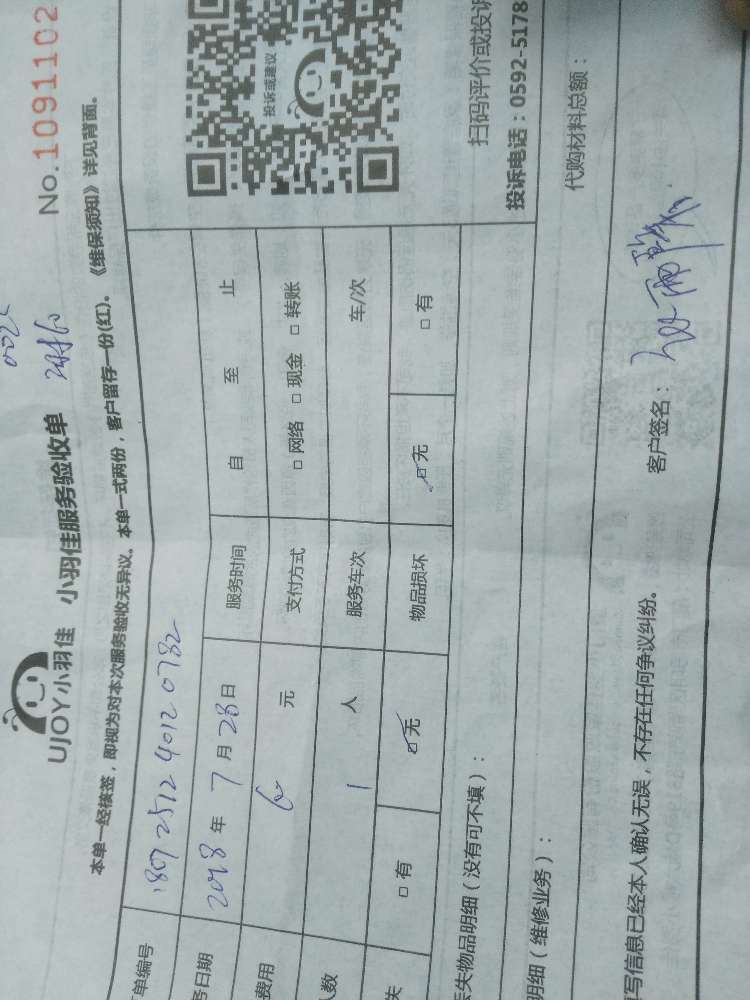 No.1091102
UJOY小羽佳 小羽佳服务验收单
本单一经核签，即视为对本次服务验收无异议。本单一式两份，客户留存一份(红)。《维保须知》详见背面。
单编号 1807251240120782
务日期 2018年7月28日 服务时间 自 至 止
费用 元 支付方式 □网络 □现金 □转账
人数 1人 服务车次 车/次
失 □有 ☑无 物品损坏 ☑无 □有
投诉或建议
扫码评价或投诉
投诉电话：0592-5178
丢失物品明细（没有可不填）：
明细（维修业务）：
代购材料总额：
写信息已经本人确认无误，不存在任何争议纠纷。
客户签名：